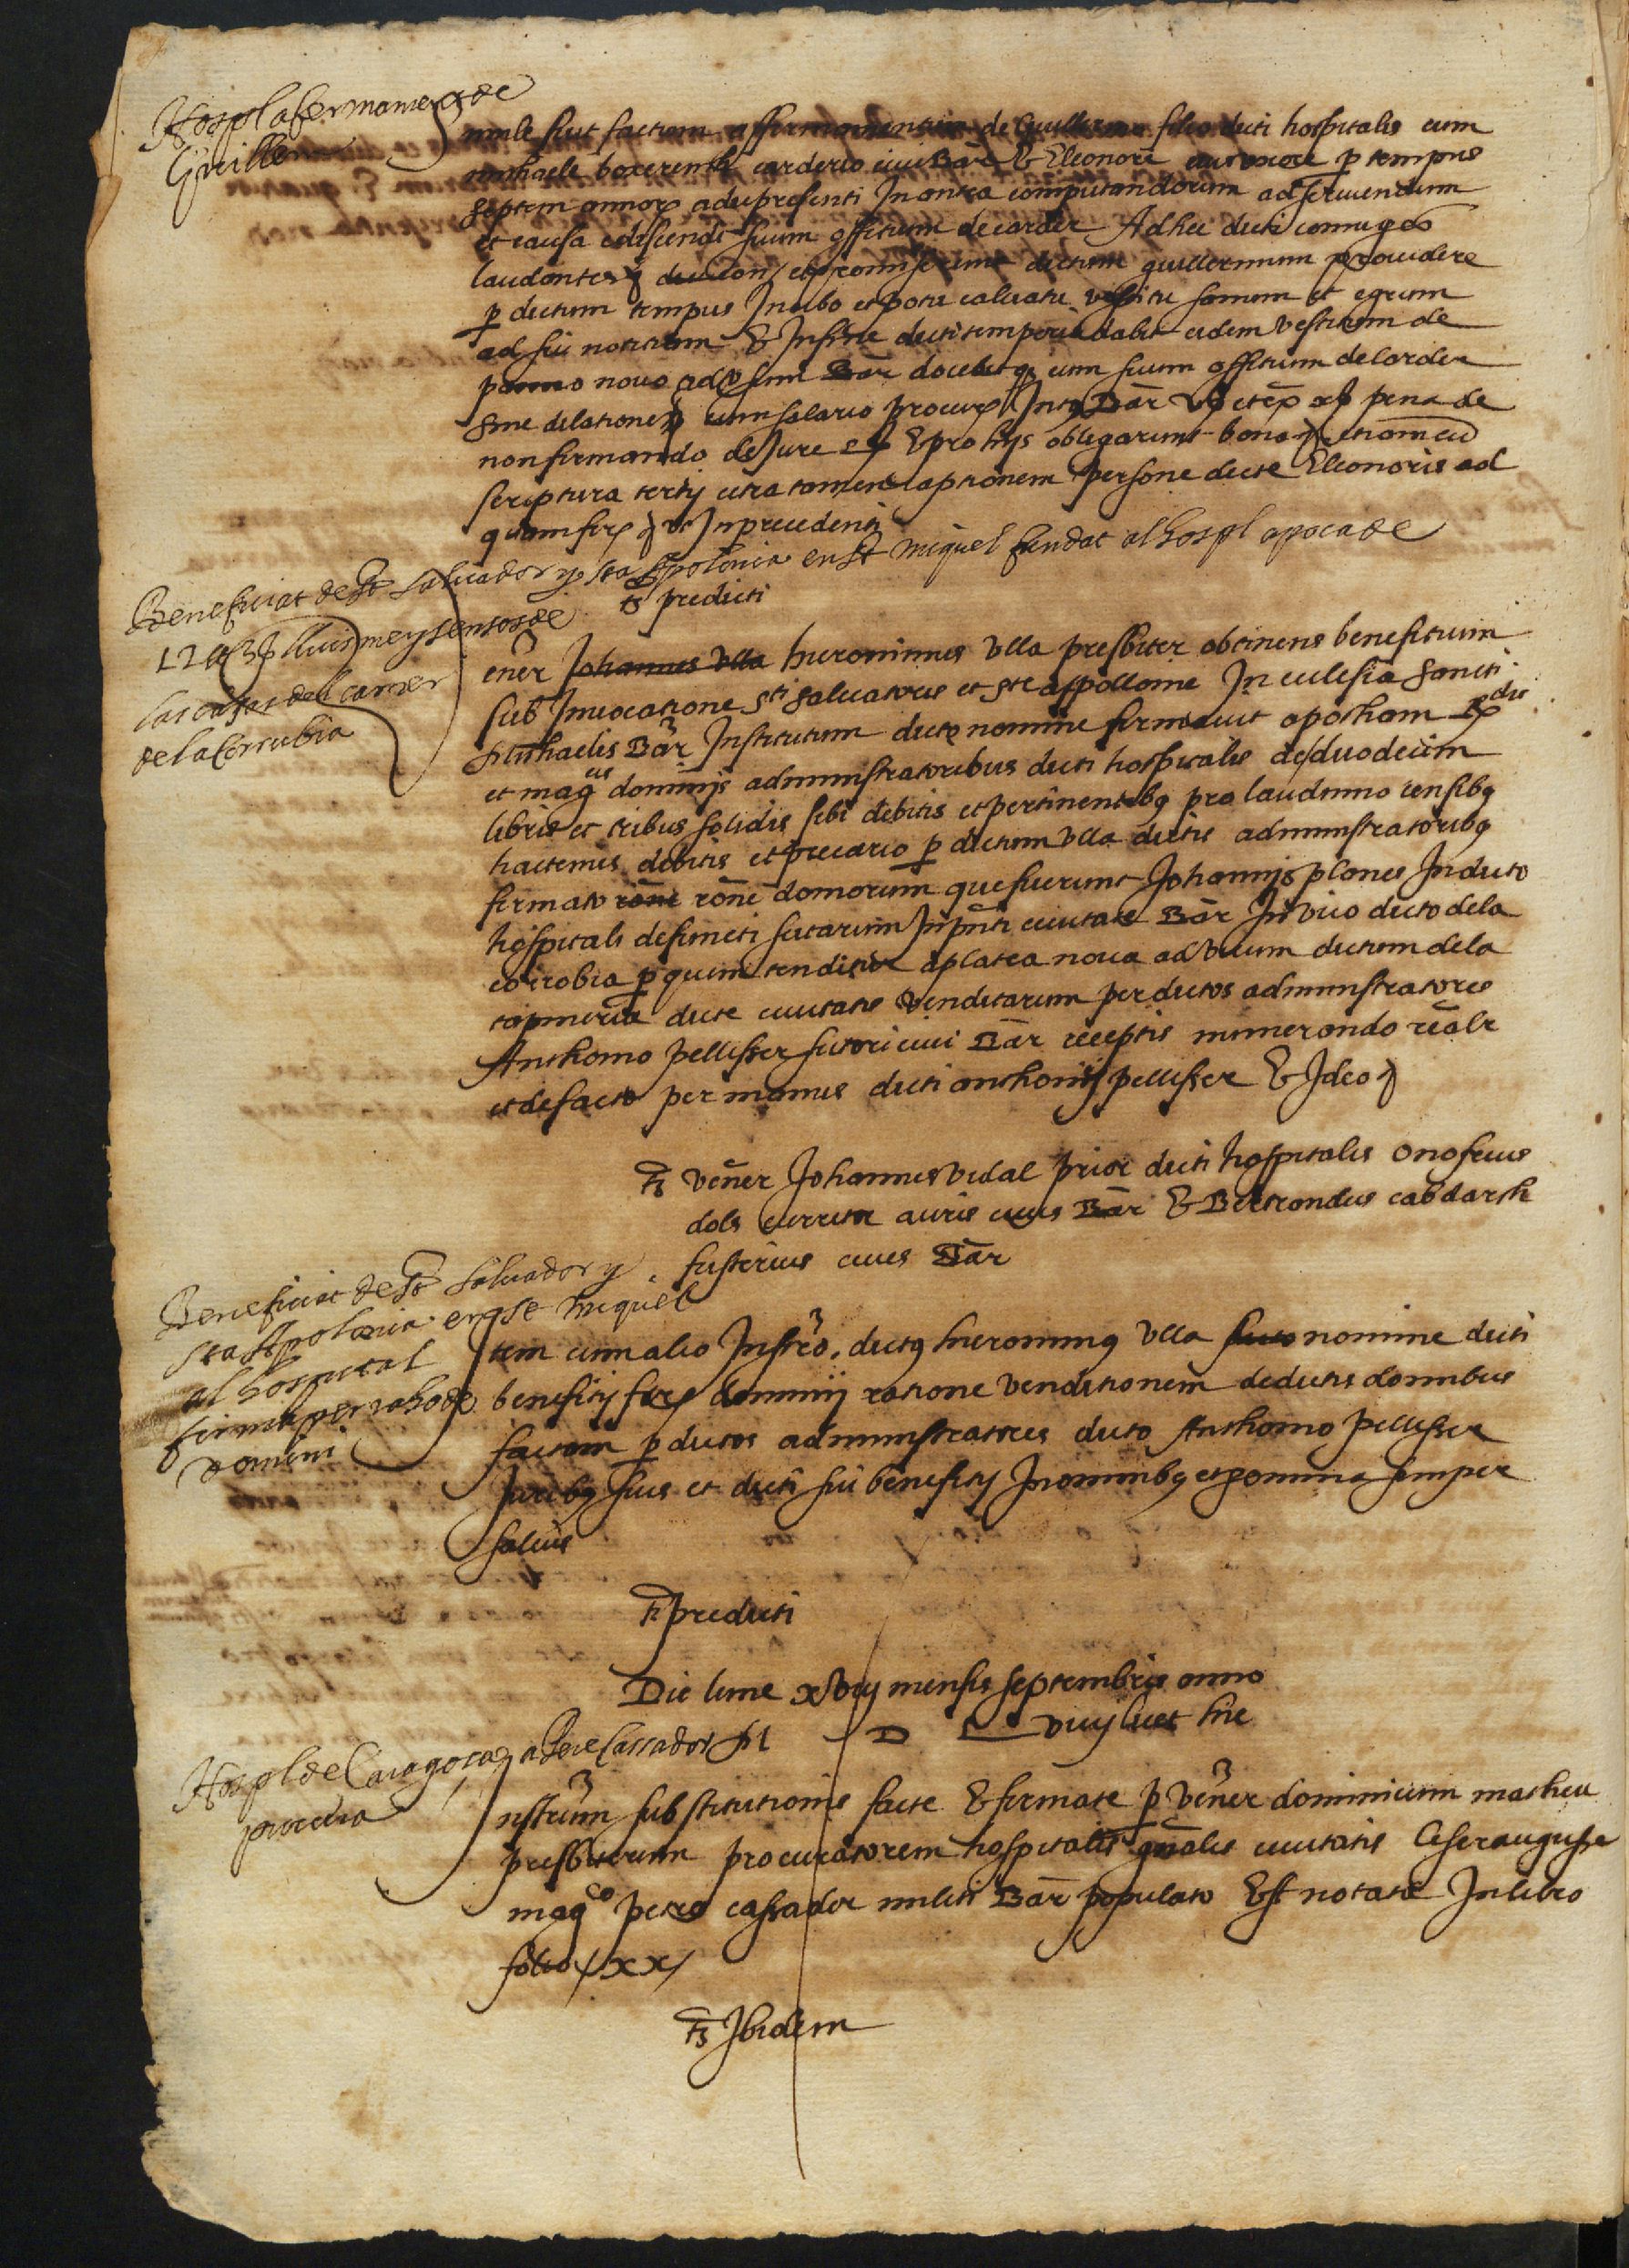 Hospl afermament de
Guillem
imile fuit factum affirmamentum de Guillermo filio dicti hospitalis cum
michaele boxerench carderio civi Bar & Eleonore eius uxore p tempus
septem annor adie presenti In antea computandorum ad serviendum
et causa adiscendi suum offitium de carder Ad hec dicti coniuges
laudantes et promiserunt dictum guillermum providere
p dictum tempus In cibo et potu calciatu vestitu sanum et egrum
ad sui notitiam & In fine dicti temporis dabit eidem vestitum de
panno novo ad usum Bar docebit q eum suum offitium de carder
sine dilatione cum salario procur Intq Bar pena de
non firmando de Jure & pro hijs obligarunt bona etiam cu
scriptura tertij citra tamen captionem persone dicte Eleonoris ad
quam ut In precedenti
ts predicti
Beneficiat de St salvador y sta Apolonia en st miquel fundat al hospl apoca de
12 ll 3 s lluismes y censos de
las casas del carrer
de la Corrubia
ener Johannes Ulla hieronimus Ulla presbiter obtinens benefitium
sub Invocatione sti salvatoris et ste appollonie In ecclesia sancti
michaelis Bar Institutum dicto nomine firmavit apocham
et magcis dominis administratoribus dicti hospitalis de duodecim
libris et tribus solidis sibi debitis et pertinentibq pro laudimio censibq
hactenus debitis et precario p dictum Ulla dictis administratoribq
firmato rone rone domorum que fuerunt Johannis planes In dicto
hospitali defuncti sitarum In pnti civitate Bar In vico dicto de la
corrobia p quem tenditur a platea nova ad vicum dictum de la
tapineria dicte civitatis venditarum per dictos administratores
Anthonio pellisser sutori civi Bar receptis numerando realr
et de facto per manus dicti anthonij pellisser & Ideo
ts vener Johannes vidal prior dicti hospitalis onofrius
dols curritor auris civis Bar & Bertrandus cabdarch
fusterius cives Bar
Beneficiat de St salvador y
sta Apolonia en st miquel
al hospital
firma per raho de
domini
Item cum alio Instro. dictq hieronimq Ulla suo nomine dicti
benefitij dominij ratione venditionem de dictis domibus
factam p dictos administratores dicto Anthonio pellisser
Juribq suis et dicti sui benefitij In omnibq et p omnia semper
salvis
ts predicti
Die lune xviiij mensis septembris anno
D L viiij licet hic
Hospl de Caragoça a Pere Cassador ml
procura
nstrum substitutionis facte & firmate p vener dominicum matheu
presbiterum procuratorem hospitalis gnalis civitatis Cesarauguste
magco petro cassador militi Bar populato Est notata In libro
folio / xx /
ts Ibidem